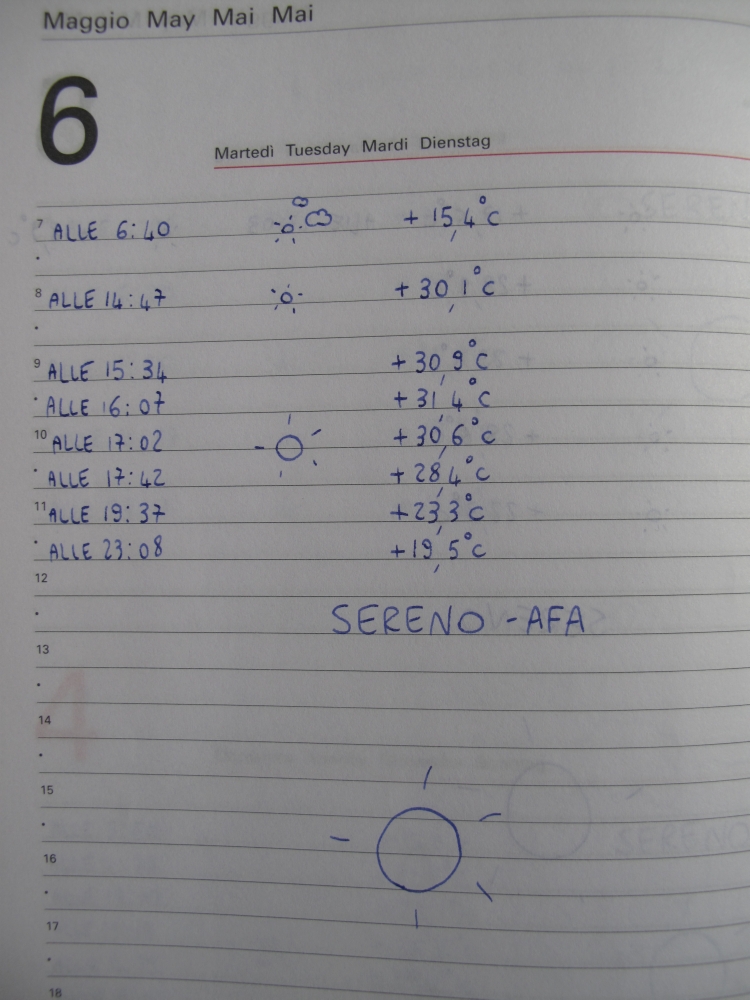 Maggio May Mai Mai
6
Martedì Tuesday Mardi Dienstag
7 ALLE 6:40 +15,4°C
8 ALLE 14:47 +30,1°C
9 ALLE 15:34 +30,9°C
ALLE 16:07 +31,4°C
10 ALLE 17:02 +30,6°C
ALLE 17:42 +28,4°C
11 ALLE 19:37 +23,3°C
ALLE 23:08 +19,5°C
12
SERENO - AFA
13
14
15
16
17
18